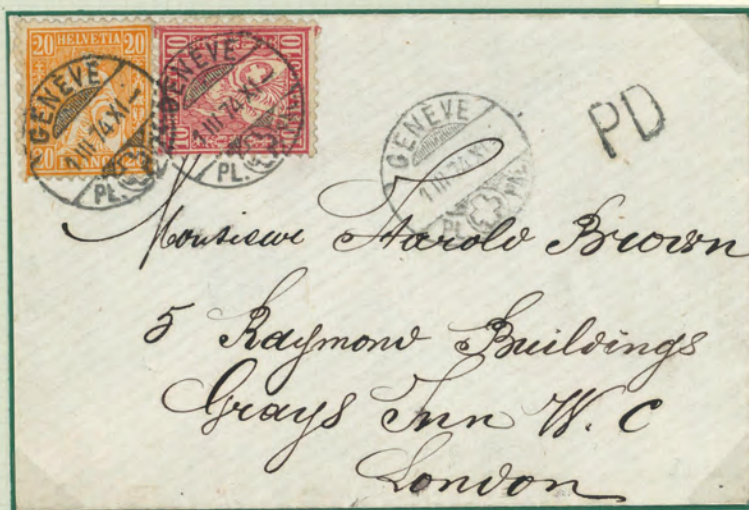 20 HELVETIA 20
20 FRANCO 20
10 10
10 CENTIMES 10
GENÈVE
1 III 74 XI
PL.
GENÈVE
1 III 74 XI
PL.
GENÈVE
1 III 74 XI
PL.
PD
Monsieur Harold Brown
5 Raymond Buildings
Grays Inn W. C
London